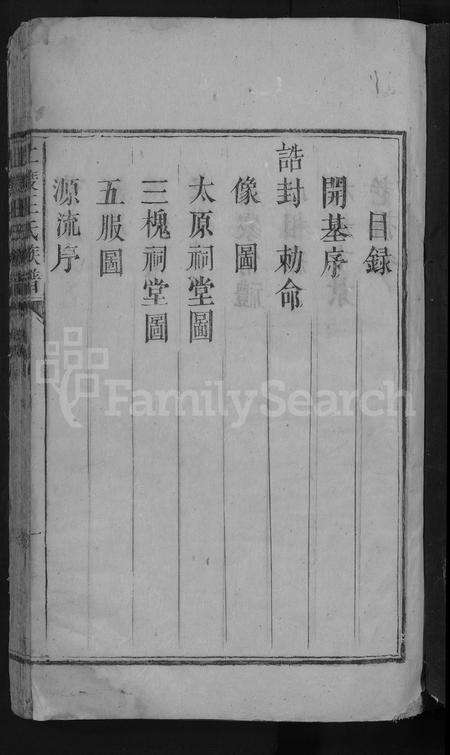 目录
開基序
誥封勅命
像圖
太原祠堂圖
三槐祠堂圖
五服圖
源流序
王氏族譜
FamilySearch